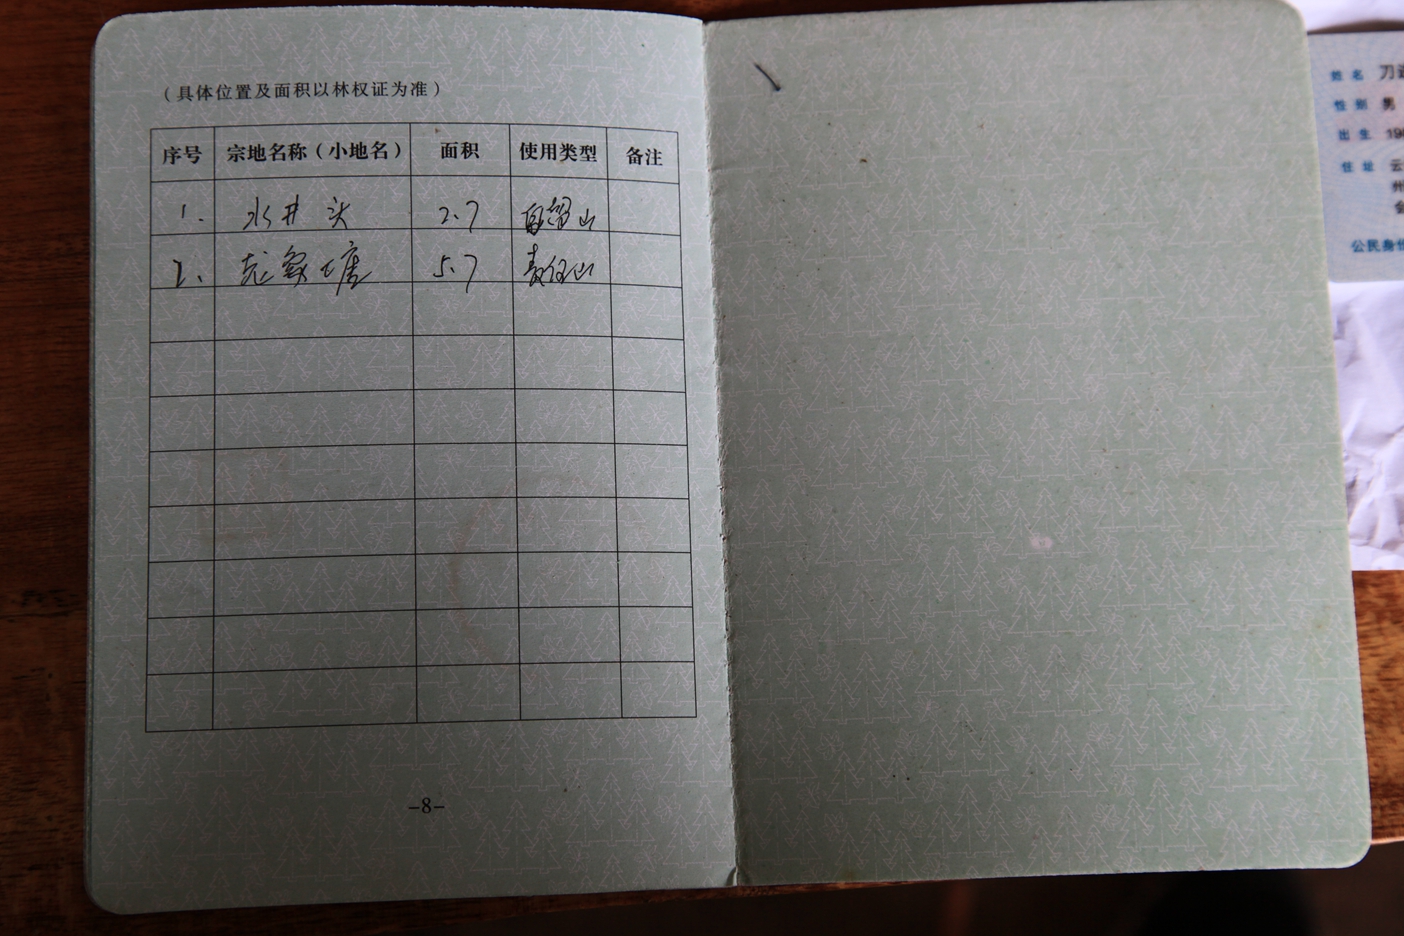 （具体位置及面积以林权证为准）
序号 宗地名称（小地名） 面积 使用类型 备注
1. 水井头 2.7 自留山
2、 5.7 责任山
-8-
姓名 刀
性别 男
出生 19
住址 云
州
公民身份